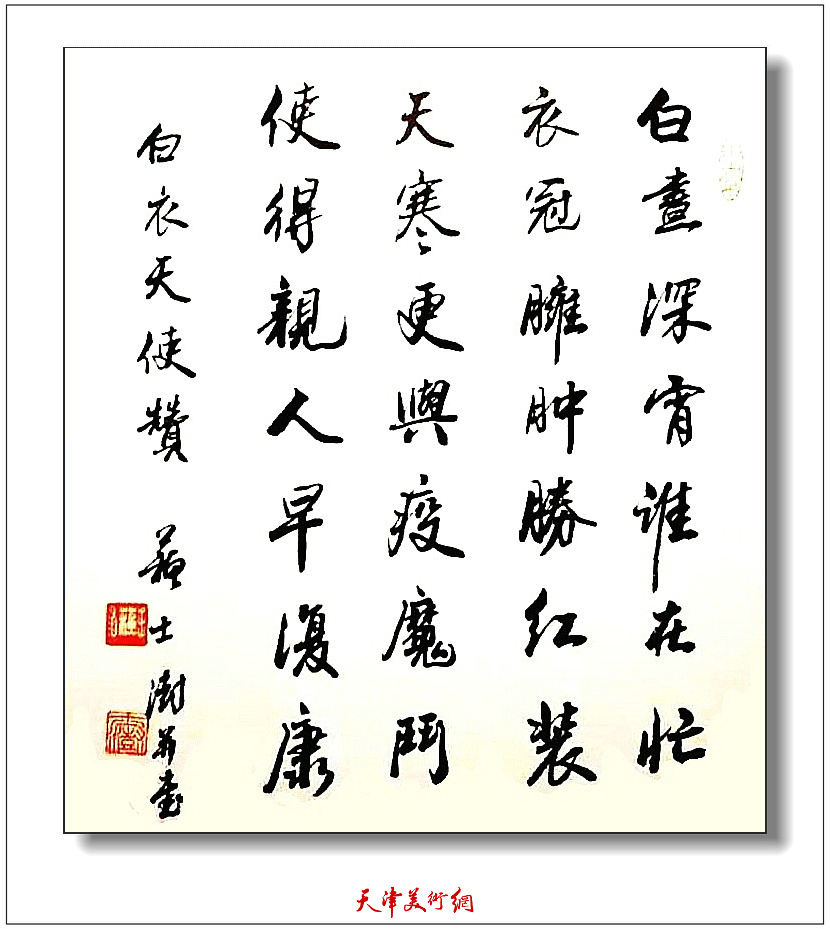 白晝深宵谁在忙
衣冠臃肿勝红装
天寒更與疫魔鬥
使得親人早復康
白衣天使贊 蘇士澍并書
天津美術網